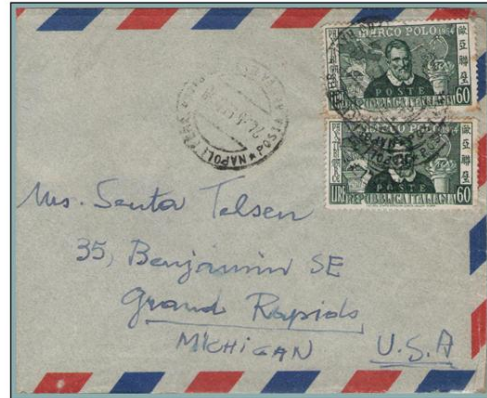 MARCO POLO
POSTE
LIRE REPUBBLICA ITALIANA 60
MARCO POLO
POSTE
LIRE REPUBBLICA ITALIANA 60
NAPOLI
POSTA AEREA
Mrs. Santa Telsen
35, Benjamin SE
Grand Rapids
MICHIGAN U.S.A